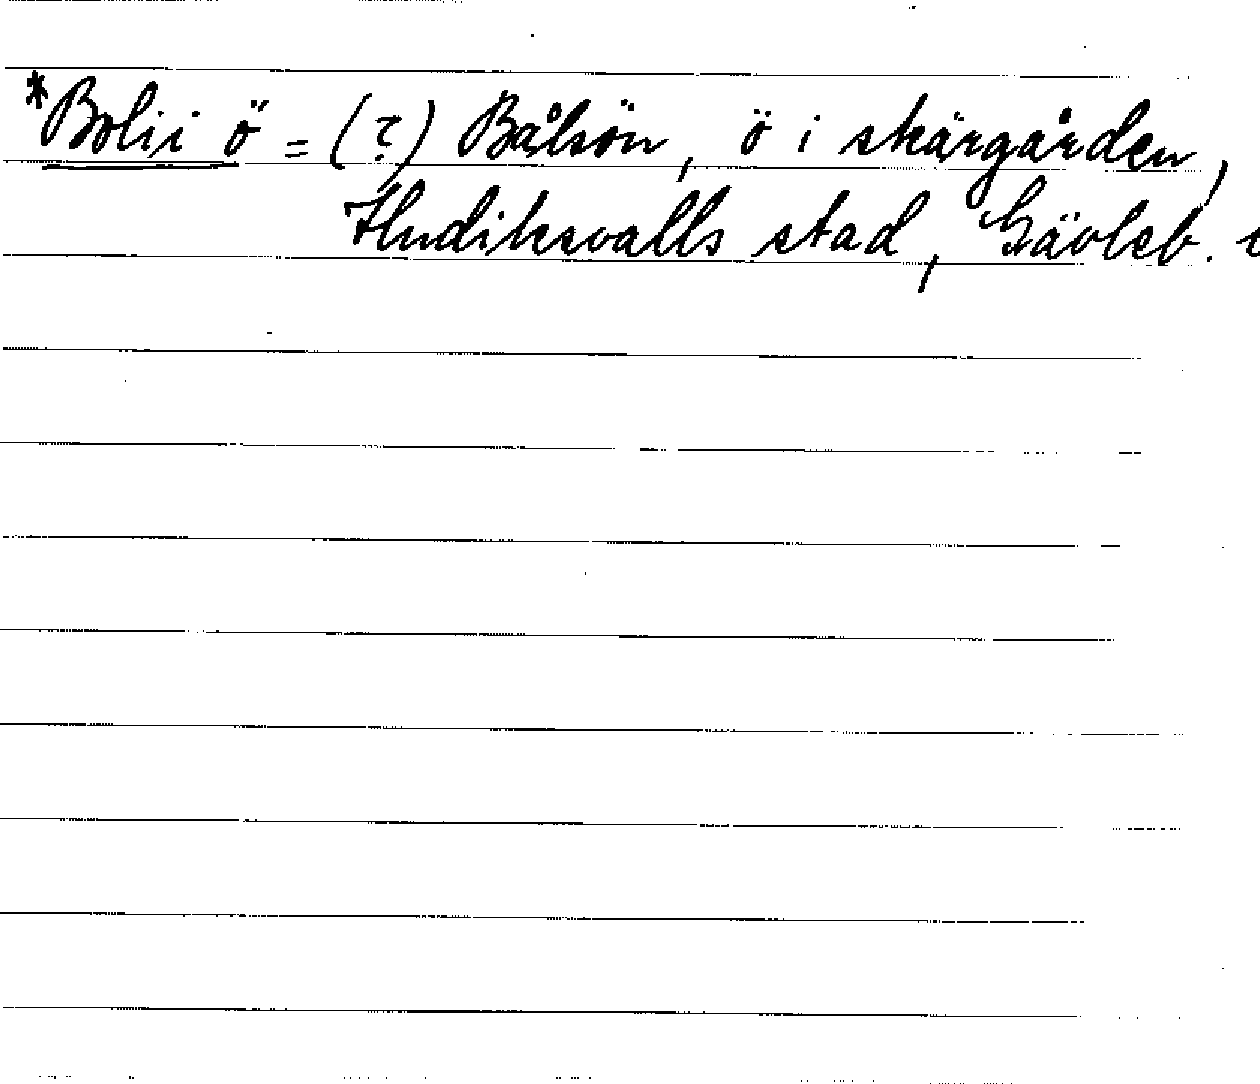 *Bolii ö = (?) Bålsön, ö i skärgården,
Hudiksvalls stad, Gävleb.